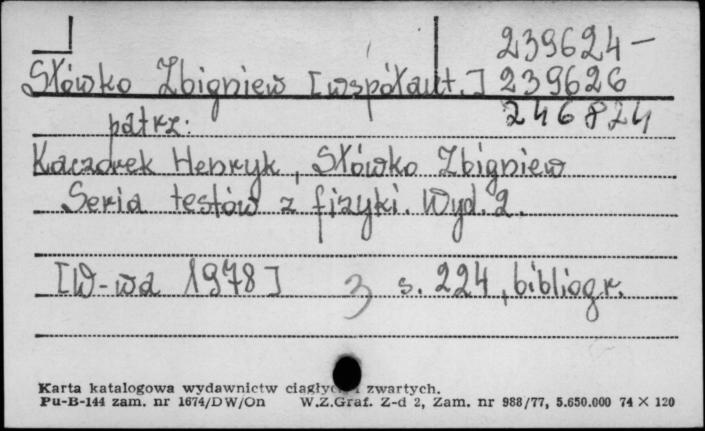 239624-
Słówko Zbigniew [współaut.] 239626
246824
patrz:
Kaczorek Henryk, Słówko Zbigniew
Seria testów z fizyki. Wyd. 2.
[W-wa 1978] 3 s. 224, bibliogr.
Karta katalogowa wydawnictw ciągłych i zwartych.
Pu-B-144 zam. nr 1674/DW/On W.Z.Graf. Z-d 2, Zam. nr 988/77, 5.650.000 74 × 120